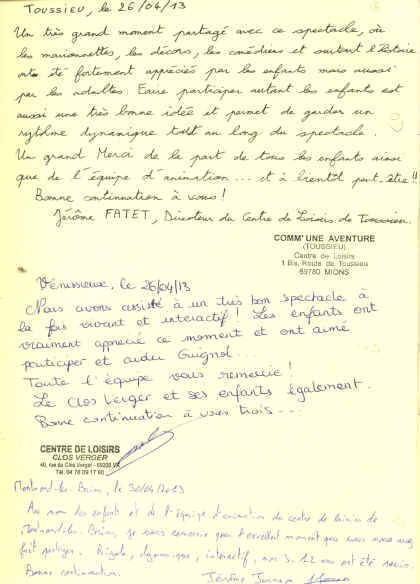 Toussieu, le 26/04/13
Un très grand moment partagé avec ce spectacle, où
les marionnettes, les décors, les comédiens et surtout l'histoire
ont été fortement appréciés par les enfants mais aussi
par les adultes. Faire participer autant les enfants est
aussi une très bonne idée et permet de garder un
rythme dynamique tout au long du spectacle.
Un grand Merci de la part de tous les enfants ainsi
que de l'équipe d'animation... et à bientôt peut-être !!
Bonne continuation à vous !
Jérôme FATET, Directeur du Centre de Loisirs de Toussieu.
COMM' UNE AVENTURE
(TOUSSIEU)
Centre de Loisirs
1 Bis, Route de Toussieu
69780 MIONS
Vénissieux, le 26/04/13
Nous avons assisté à un très bon spectacle à
la fois vivant et interactif ! Les enfants ont
vraiment apprécié ce moment et ont aimé
participer et aider Guignol...
Toute l'équipe vous remercie !
Le Clos Verger et ses enfants également.
Bonne continuation à vous trois...
CENTRE DE LOISIRS
CLOS VERGER
40, rue du Clos Verger - 69200 VX
Tél. 04 78 09 17 60
le 30/04/2013
Au nom des enfants et de l'équipe d'animation du centre de loisirs de
je vous remercie pour l'excellent moment que vous nous avez
fait partager. Rigolo, dynamique, interactif, nos 3-12 ans ont été ravis.
Bonne continuation.
Jérôme